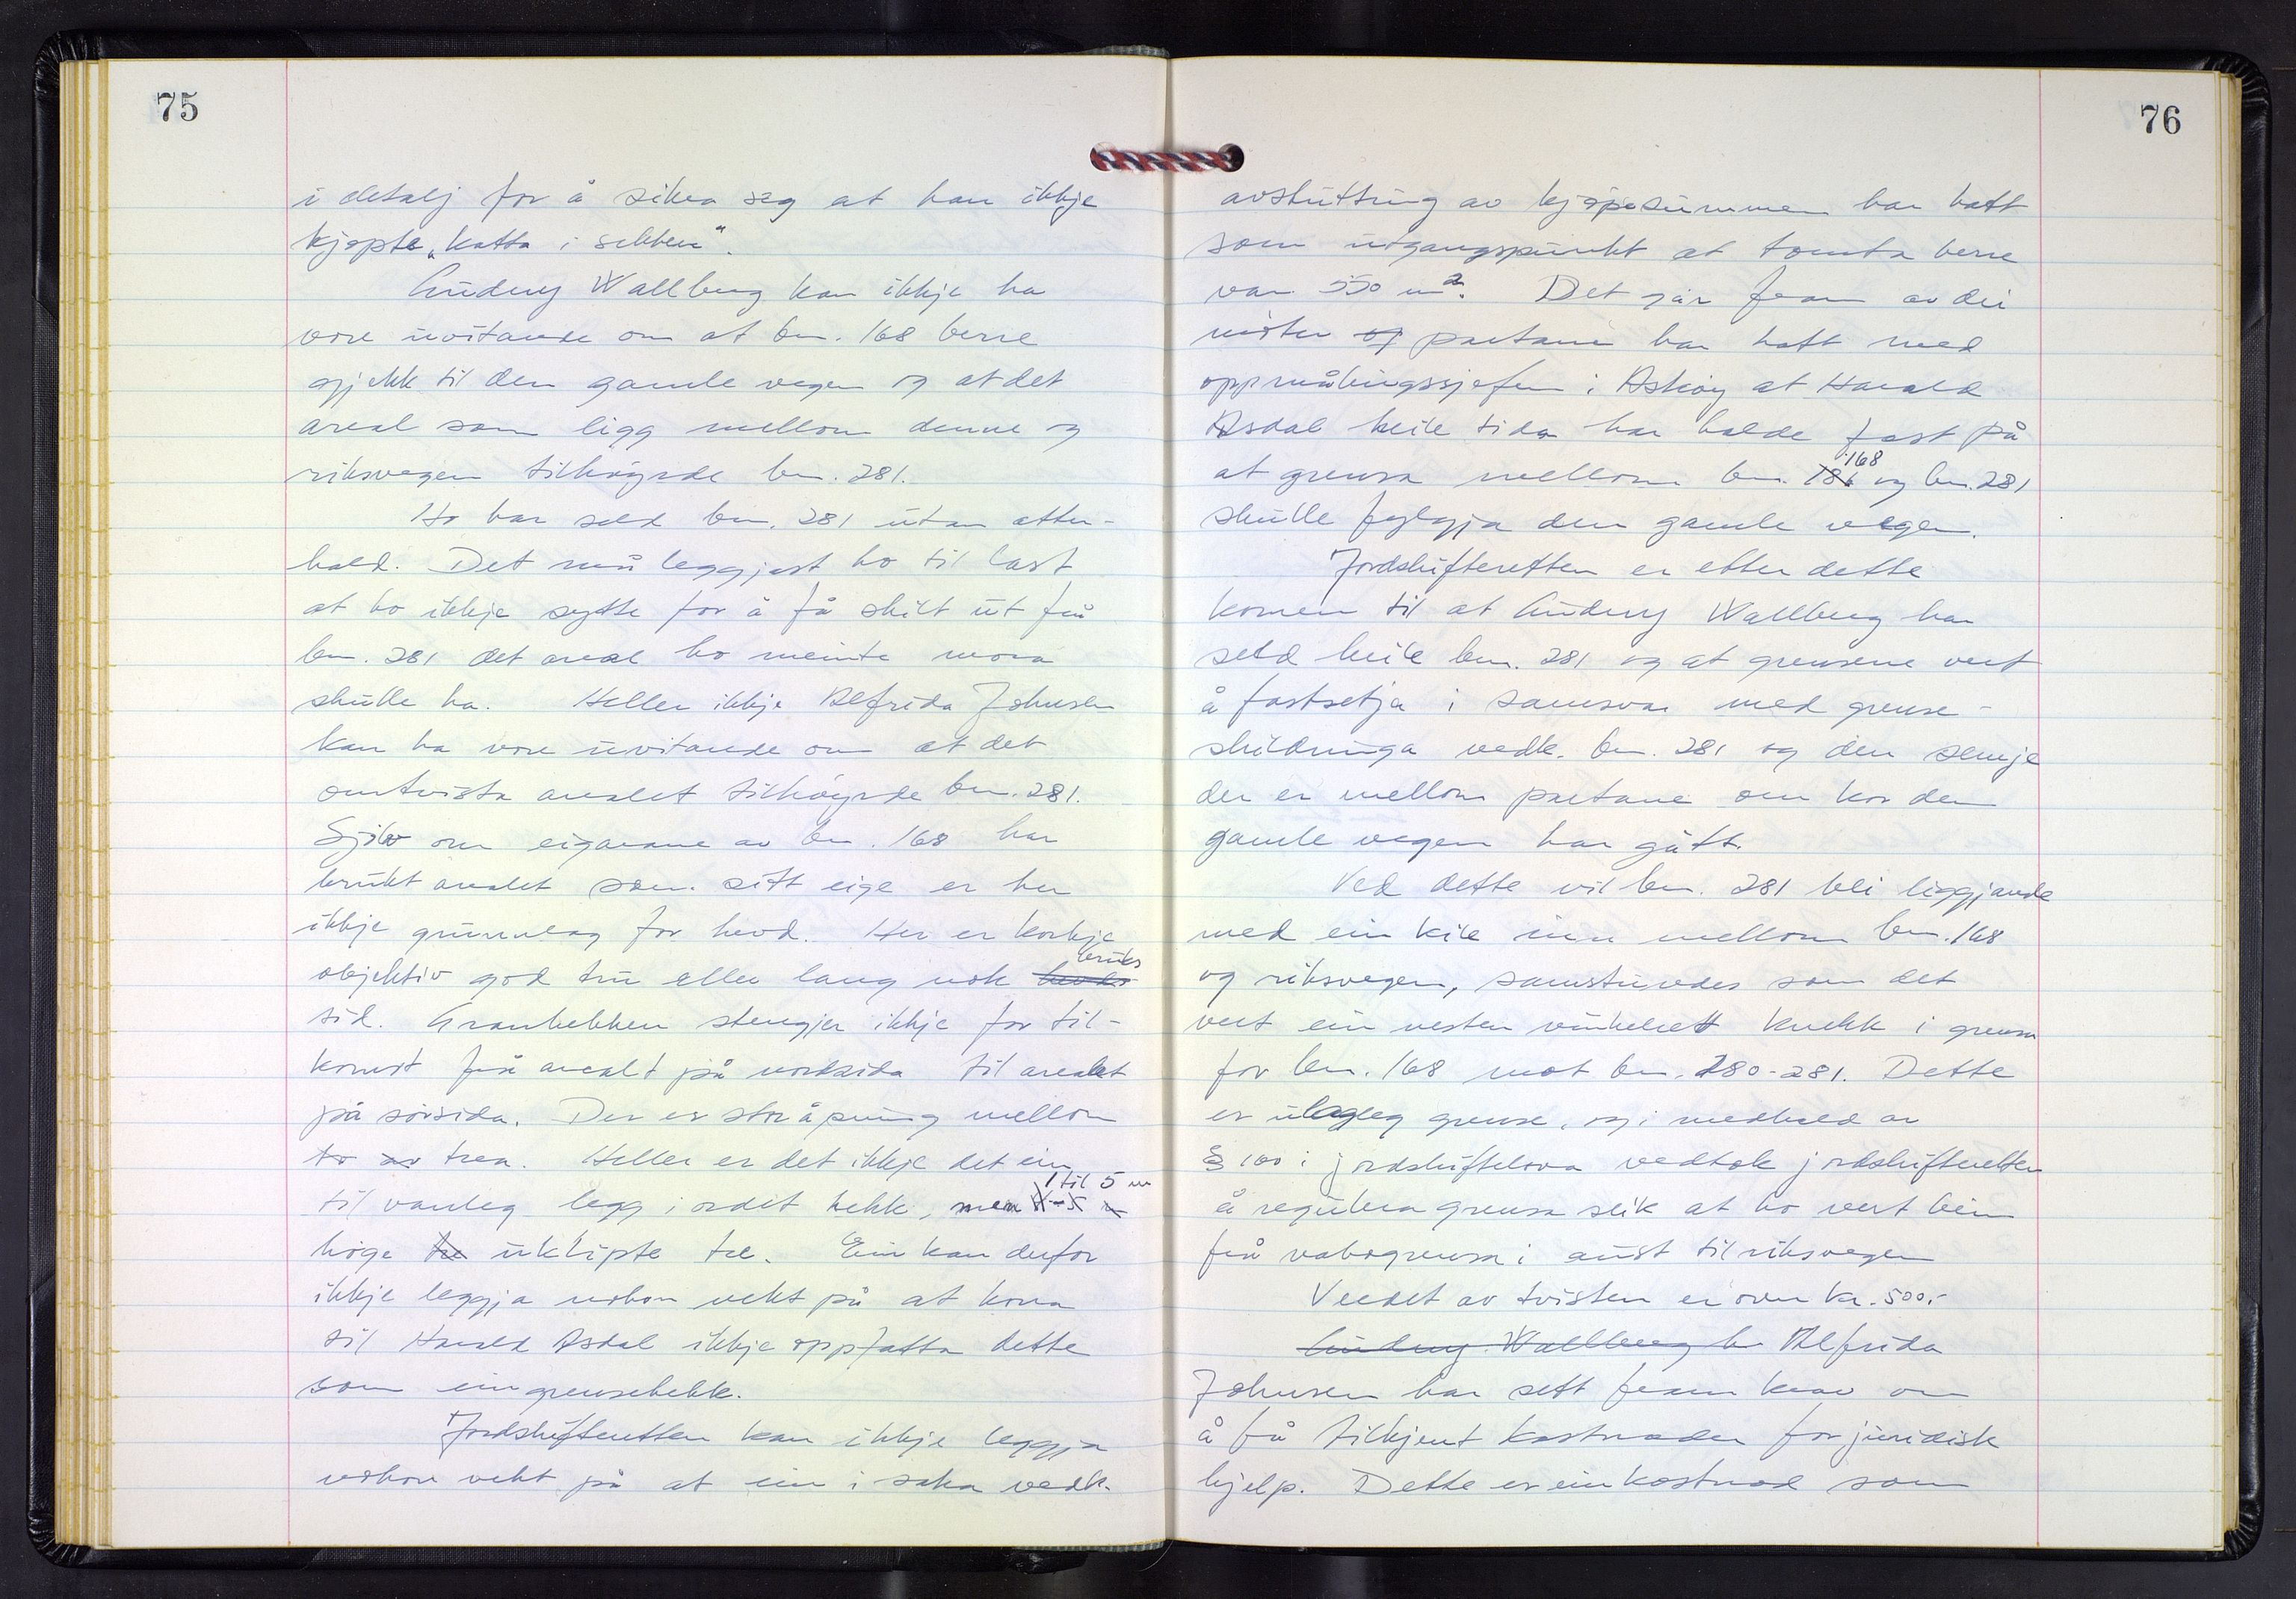 75
i detalj for å sikra seg at han ikkje
kjøpte „katta i sekken".
Audny Wallberg kan ikkje ha
vore uvitande om at bn. 168 berre
gjekk til den gamle vegen og at det
areal som ligg mellom denne og
riksvegen tilhøyrde bn. 281.
Ho har seld bn. 281 utan atter-
hald. Det må leggjast ho til last
at ho ikkje sytte for å få skilt ut frå
bn. 281 det areal ho meinte mora
skulle ha. Heller ikkje Alfrida Johnsen
kan ha vore uvitande om at det
omtvista arealet tilhøyrde bn. 281.
Sjølv om eigarane av bn. 168 har
brukt arealet som sitt eige er her
ikkje grunnlag for hevd. Her er korkje
objektiv god tru eller lang nok hevds bruks
tid. Granhekken stengjer ikkje for til-
komst frå arealet på nordsida til arealet
på sørsida. Der er stor åpning mellom
to av trea. Heller er det ikkje det ein
til vanleg legg i ordet hekk, men 4-5 m 1 til 5 m
høge tre uklipte tre. Ein kan derfor
ikkje leggja nokon vekt på at kona
til Harald Asdal ikkje oppfatta dette
som ein grensehekk.
Jordskifteretten kan ikkje leggja
nokon vekt på at ein i saka vedk.
76
avslutting av kjøpesummen har hatt
som utgangspunkt at tomta berre
var 550 m². Det går fram av dei
møter og partane har hatt med
oppmålingssjefen i Askøy at Harald
Asdal heile tida har halde fast på
at grensa mellom bn. 186 168 og bn. 281
skulle fylgja den gamle vegen.
Jordskifteretten er etter dette
komen til at Audny Wallberg har
seld heile bn. 281 og at grensene vert
å fastsetja i samsvar med grense-
skildringa vedk. bn. 281 og den semje
der er mellom partane om kor den
gamle vegen har gått.
Ved dette vil bn. 281 bli liggjande
med ein kile inn mellom bn. 168
og riksvegen, samstundes som det
vert ein nesten vinkelrett knekk i grensa
for bn. 168 mot bn. 280-281. Dette
er ulagleg grense, og i medhald av
§ 100 i jordskiftelova vedtok jordskifteretten
å regulera grensa slik at ho vert bein
frå nabogrensa i aust til riksvegen
Verdet av tvisten er over kr. 500,-
Audny Wallberg h Alfrida
Johnsen har sett fram krav om
å få tilkjent kostnader for juridisk
hjelp. Dette er ein kostnad som